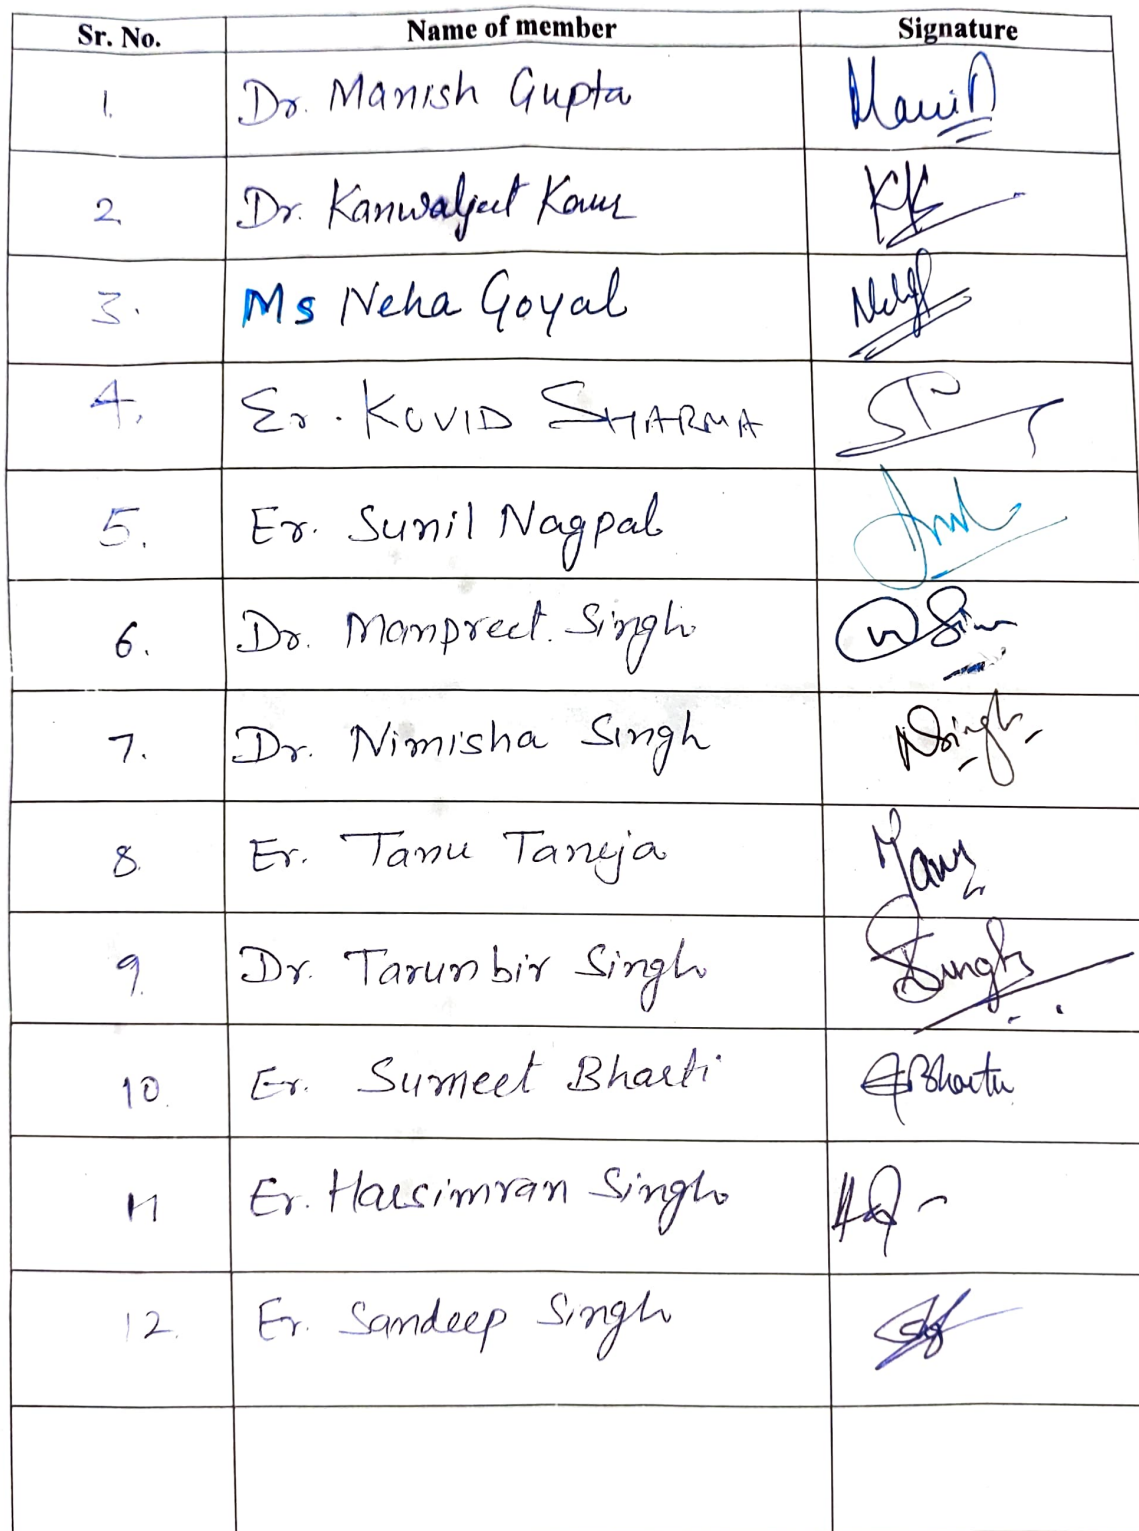 Sr. No. Name of member Signature
1. Dr. Manish Gupta
2 Dr. Kanwaljeet Kaur KK
3. Ms Neha Goyal
4. Er. KOVID SHARMA
5. Er. Sunil Nagpal
6. Dr. Manpreet Singh
7. Dr. Nimisha Singh NSingh
8. Er. Tanu Taneja Tanu
9. Dr. Tarunbir Singh Singh
10. Er. Sumeet Bharti Bharti
11 Er. Harsimran Singh
12. Er. Sandeep Singh